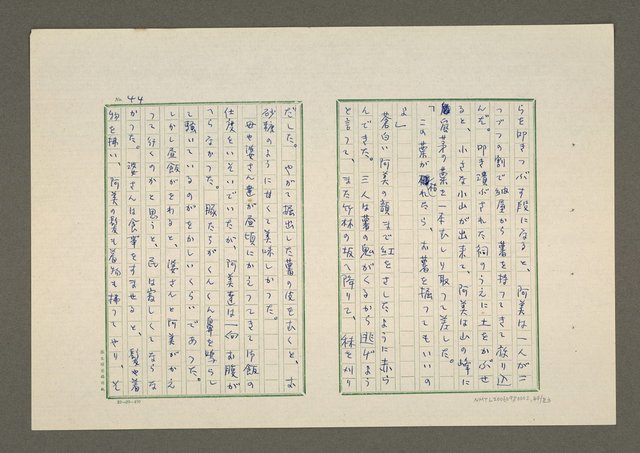 らを叩きつぶす段になると、阿美は一人が二
つづつの割で納屋から薯を持つてきて放り込
んだ。叩き潰がされた祠のうえに土をかぶせ
ると、小さな小山が出来た、阿美は山の峰に
眉芽の葉を一本むしり取つて差した。
「この葉が枯れたら、お薯を掘つてもいいの
よ」
蒼白い阿美の顔まで紅をさしたように赤ら
んできた。三人は薯の鬼がくるから逃げよう
と言つて、また竹林の坂へ降りて、林を刈り
No. 44
だした。やがて掘出した薯の皮をむくと、お
砂糖のように甘くて美味しかつた。
母や婆さん達が昼頃にかえつてきて昼飯の
仕度をいそいでいたが、阿美達は一向お腹が
つらなかつた。豚たちがくんくん鼻を鳴らし
て騒いでいるのがをかしいくらいであつた。
しかし昼飯がをわると、婆さんと阿美がかえ
つて行くのかと思うと、民は寂しくてならな
かつた。婆さんは食事をすませると、髪や着
物を掃い、阿美の髪も着物も掃つてやり、そ
20×20=400
NMTL20060980002,44/83